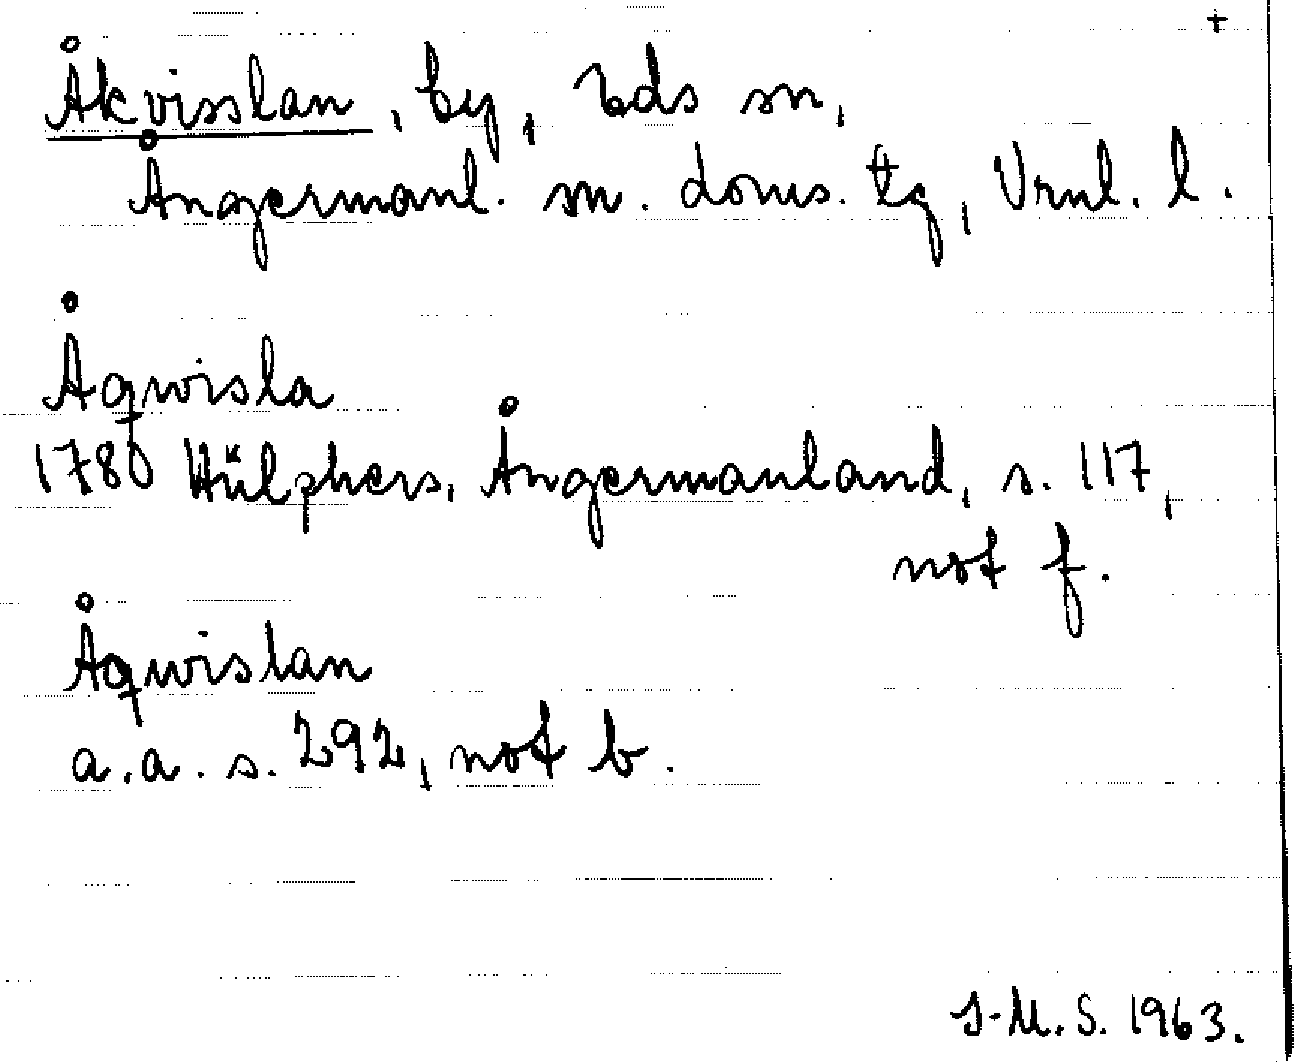 +
Åkvisslan, by, Eds sn,
Ångermanl. m. doms. tg, Vrnl. l.
Åqwisla
1780 Hülphers, Ångermanland, s. 117,
not f.
Åqwislan
a.a. s. 292, not b.
I-M.S. 1963.